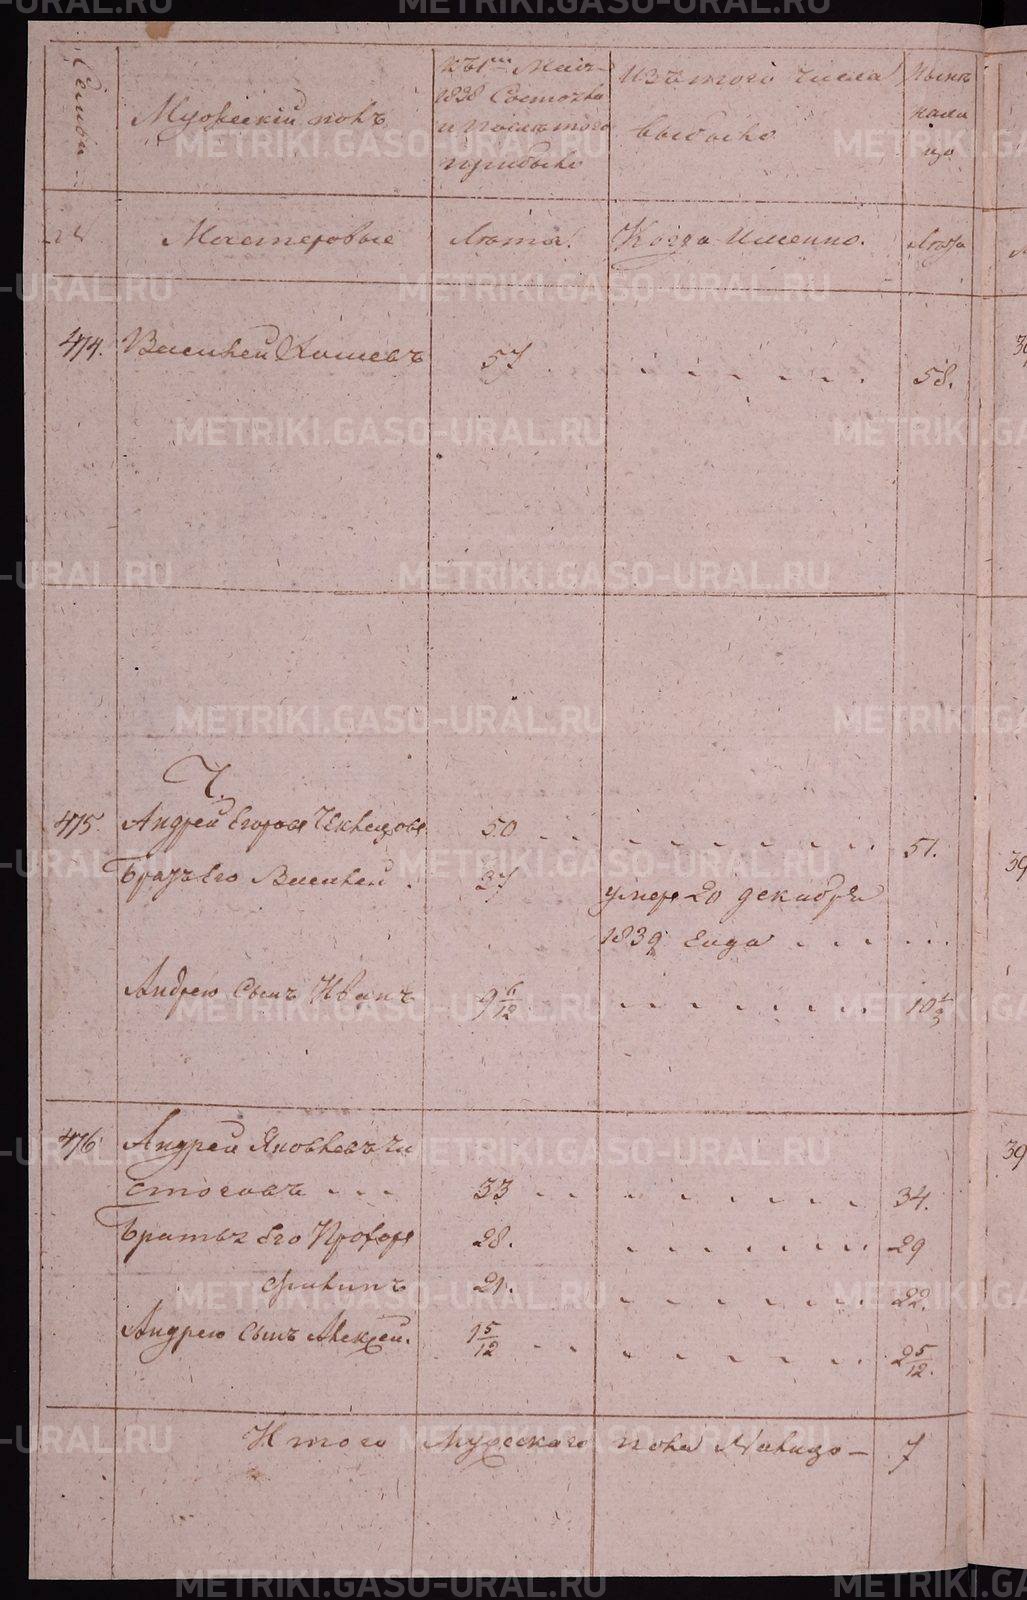 Семьи
Мужеский полъ
Къ 1му Маія
1838 Состояло
и после того
прибыло
Изъ того числа
выбыло
Ныне
нали
цо
№
Мастеровые
Лета.
Когда Именно.
Лета
474. Василей Кошевъ 57 58.
Ч.
475. Андрей Егоровъ 50 51.
Братъ Его Василей 37 умеръ 20 декабря
1839 Года
Андрею Сынъ Иванъ 9 6/12 10 1/2
476. Андрей Яковлевъ Чи
стосовъ 33 34.
Братья Его Прохоръ 28. 29
Филипъ 21. 22.
Андрею Сынъ Алексей. 1 5/12 2 5/12.
Итого Мужескаго пола Налицо — 7
39
39
METRIKI.GASO-URAL.RU